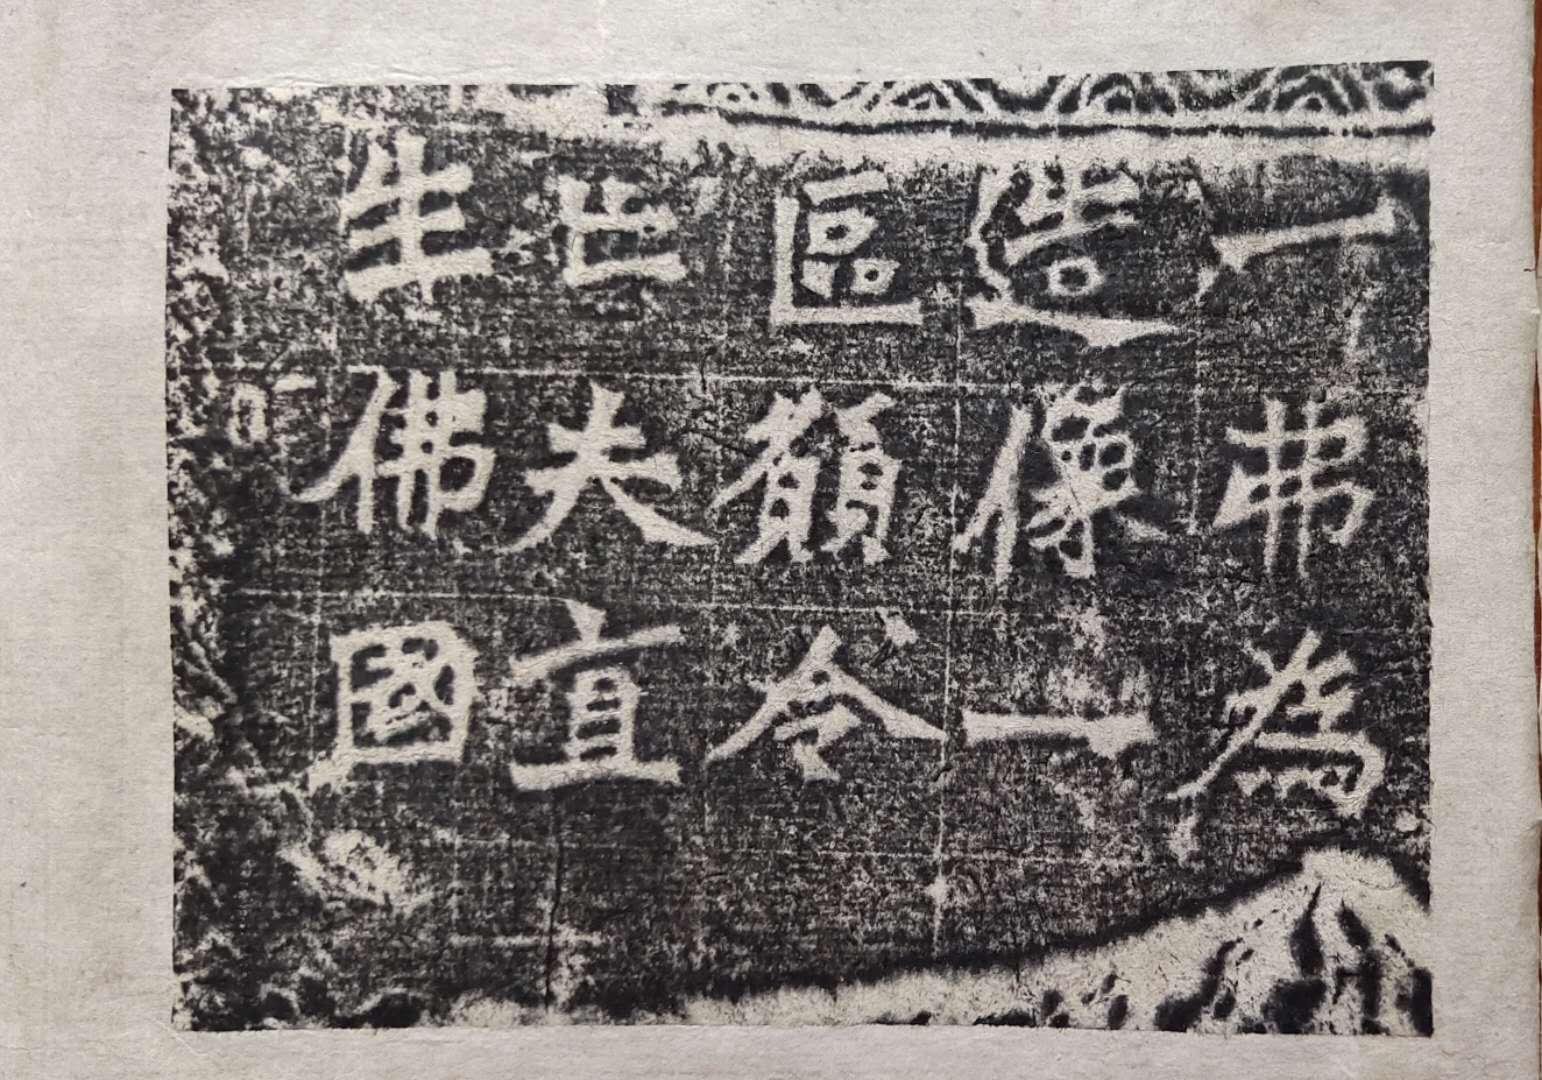 一弗為
造像一
區願令
亡夫直
生佛國